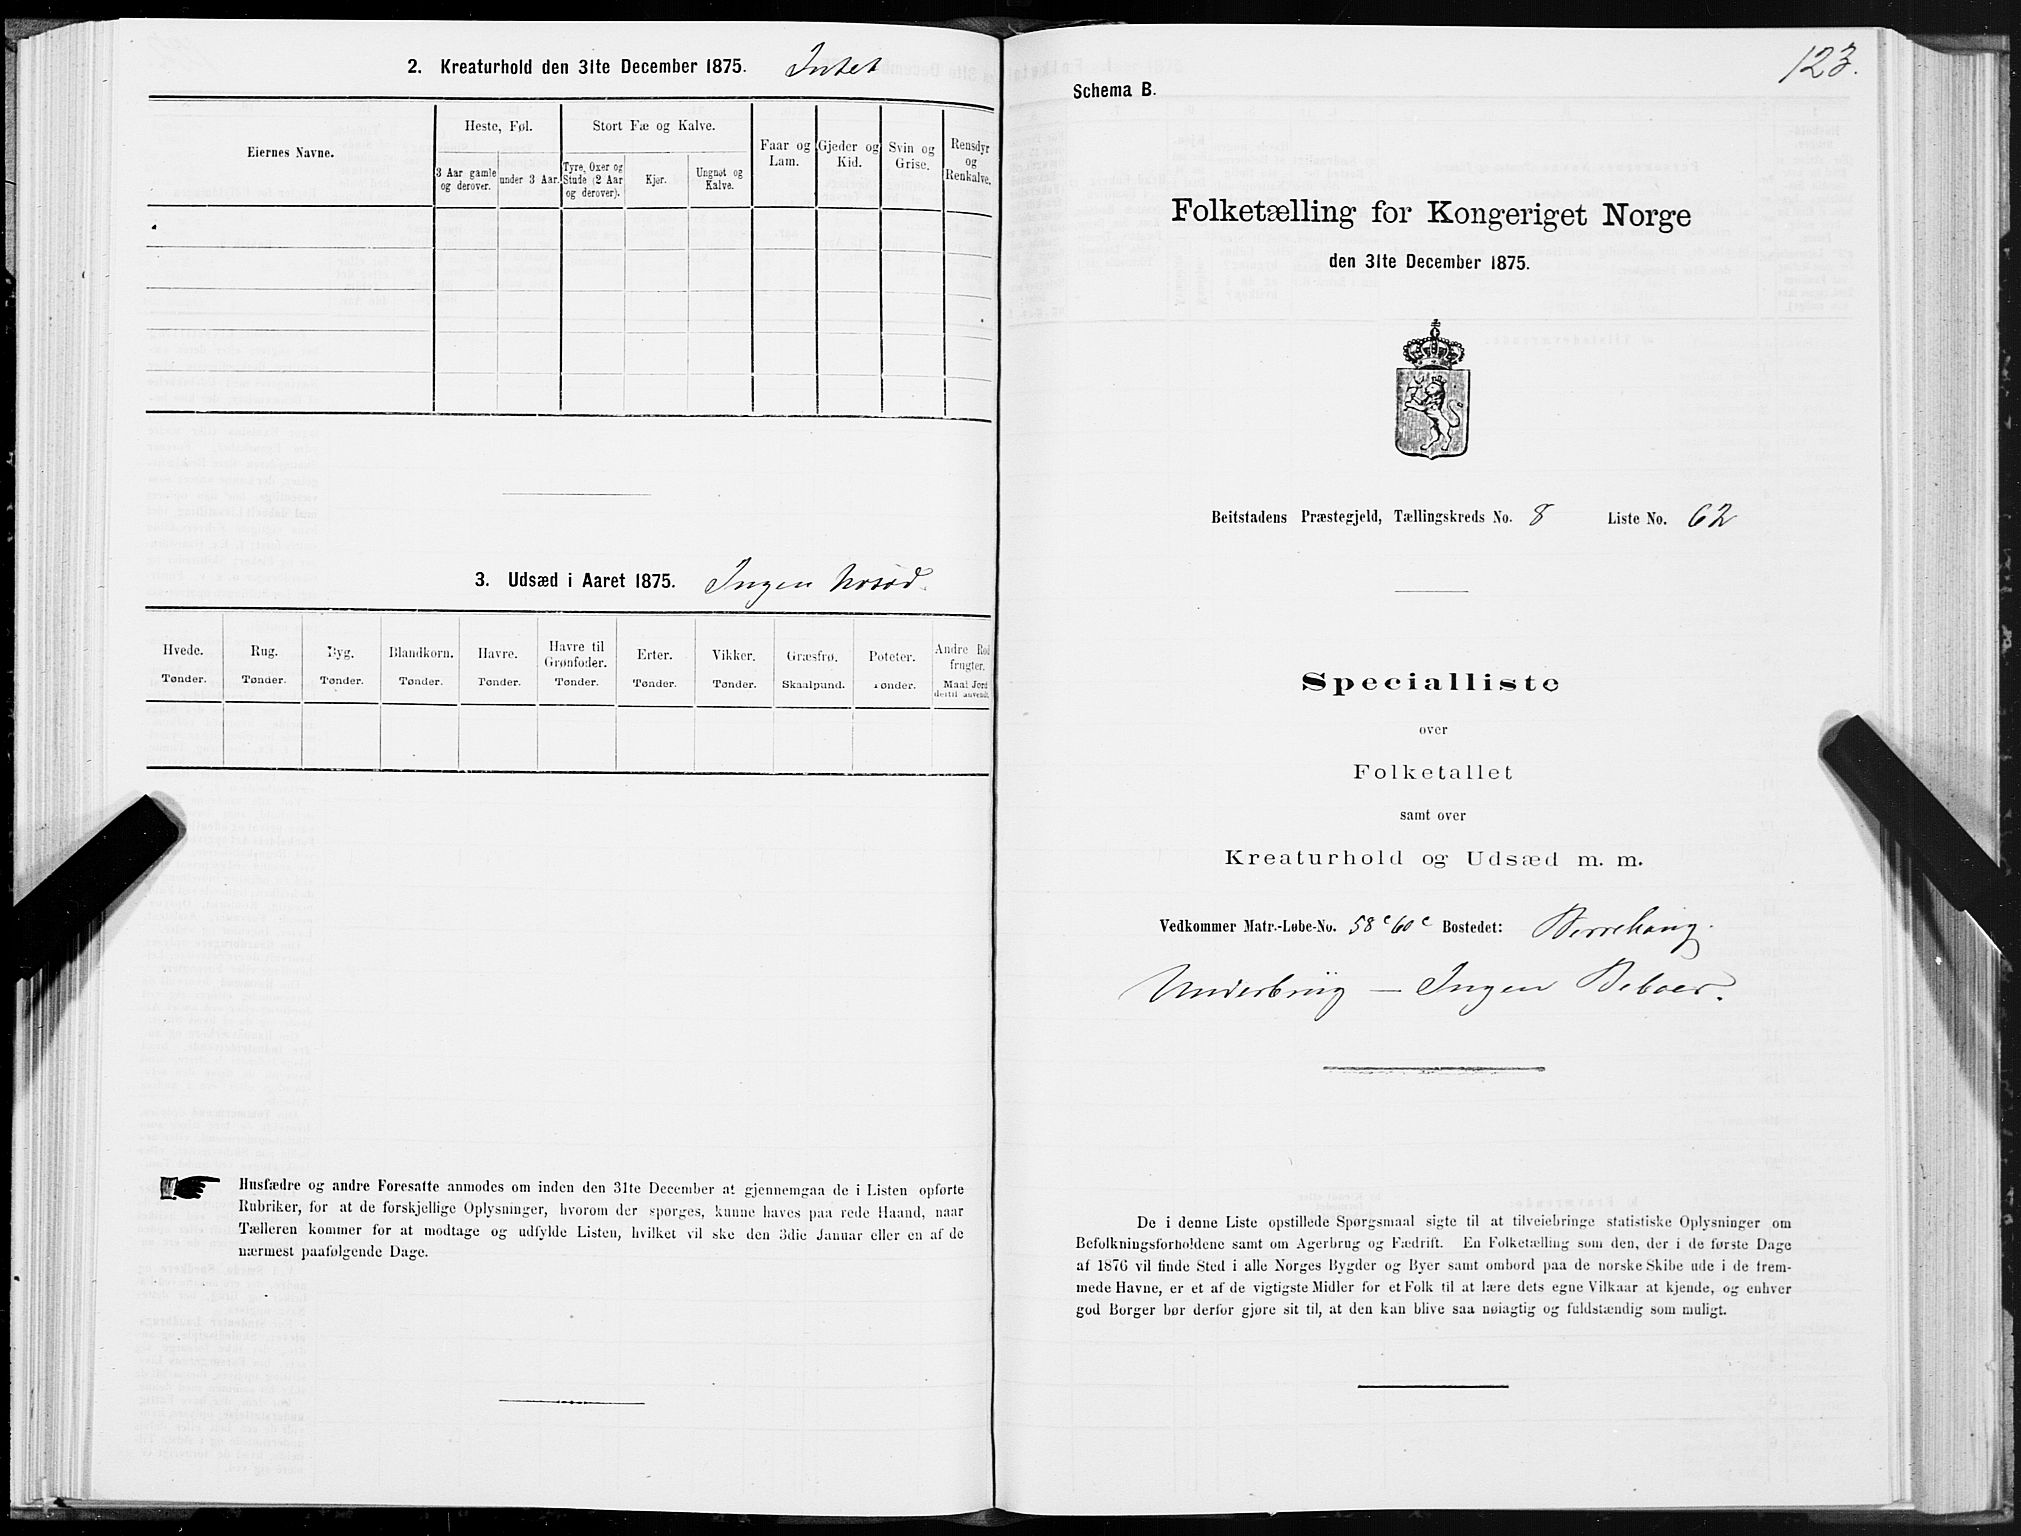 2. Kreaturhold den 31te December 1875. Intet
Eiernes Navne.
Heste, Føl.
Stort Fæ og Kalve.
Faar og Lam.
Gjeder og Kid.
Svin og Grise.
Rensdyr og Renkalve.
3 Aar gamle og derover.
under 3 Aar.
Tyre, Oxer og Stude (2 Aar og derover).
Kjør.
Ungnøt og Kalve.
3. Udsæd i Aaret 1875. Ingen Udsæd.
Hvede. Rug. Byg. Blandkorn. Havre. Havre til Grønfoder. Erter. Vikker. Græsfrø. Poteter. Andre Rodfrugter.
Tønder. Tønder. Tønder. Tønder. Tønder. Tønder. Tønder. Tønder. Skaalpund. Tønder. Maal Jord dertil anvendt.
Husfædre og andre Foresatte anmodes om inden den 31te December at gjennemgaa de i Listen opførte
Rubriker, for at de forskjellige Oplysninger, hvorom der spørges, kunne haves paa rede Haand, naar
Tælleren kommer for at modtage og udfylde Listen, hvilket vil ske den 3die Januar eller en af de
nærmest paafølgende Dage.
123.
Schema B.
Folketælling for Kongeriget Norge
den 31te December 1875.
Beitstadens Præstegjeld, Tællingskreds No. 8 Liste No. 62
Specialliste
over
Folketallet
samt over
Kreaturhold og Udsæd m. m.
Vedkommer Matr.-Løbe-No. 58c 60c Bostedet:
Underbrug — Ingen Beboer.
De i denne Liste opstillede Spørgsmaal sigte til at tilveiebringe statistiske Oplysninger om
Befolkningsforholdene samt om Agerbrug og Fædrift. En Folketælling som den, der i de første Dage
af 1876 vil finde Sted i alle Norges Bygder og Byer samt ombord paa de norske Skibe ude i de frem-
mede Havne, er et af de vigtigste Midler for et Folk til at lære dets egne Vilkaar at kjende, og enhver
god Borger bør derfor gjøre sit til, at den kan blive saa nøiagtig og fuldstændig som muligt.